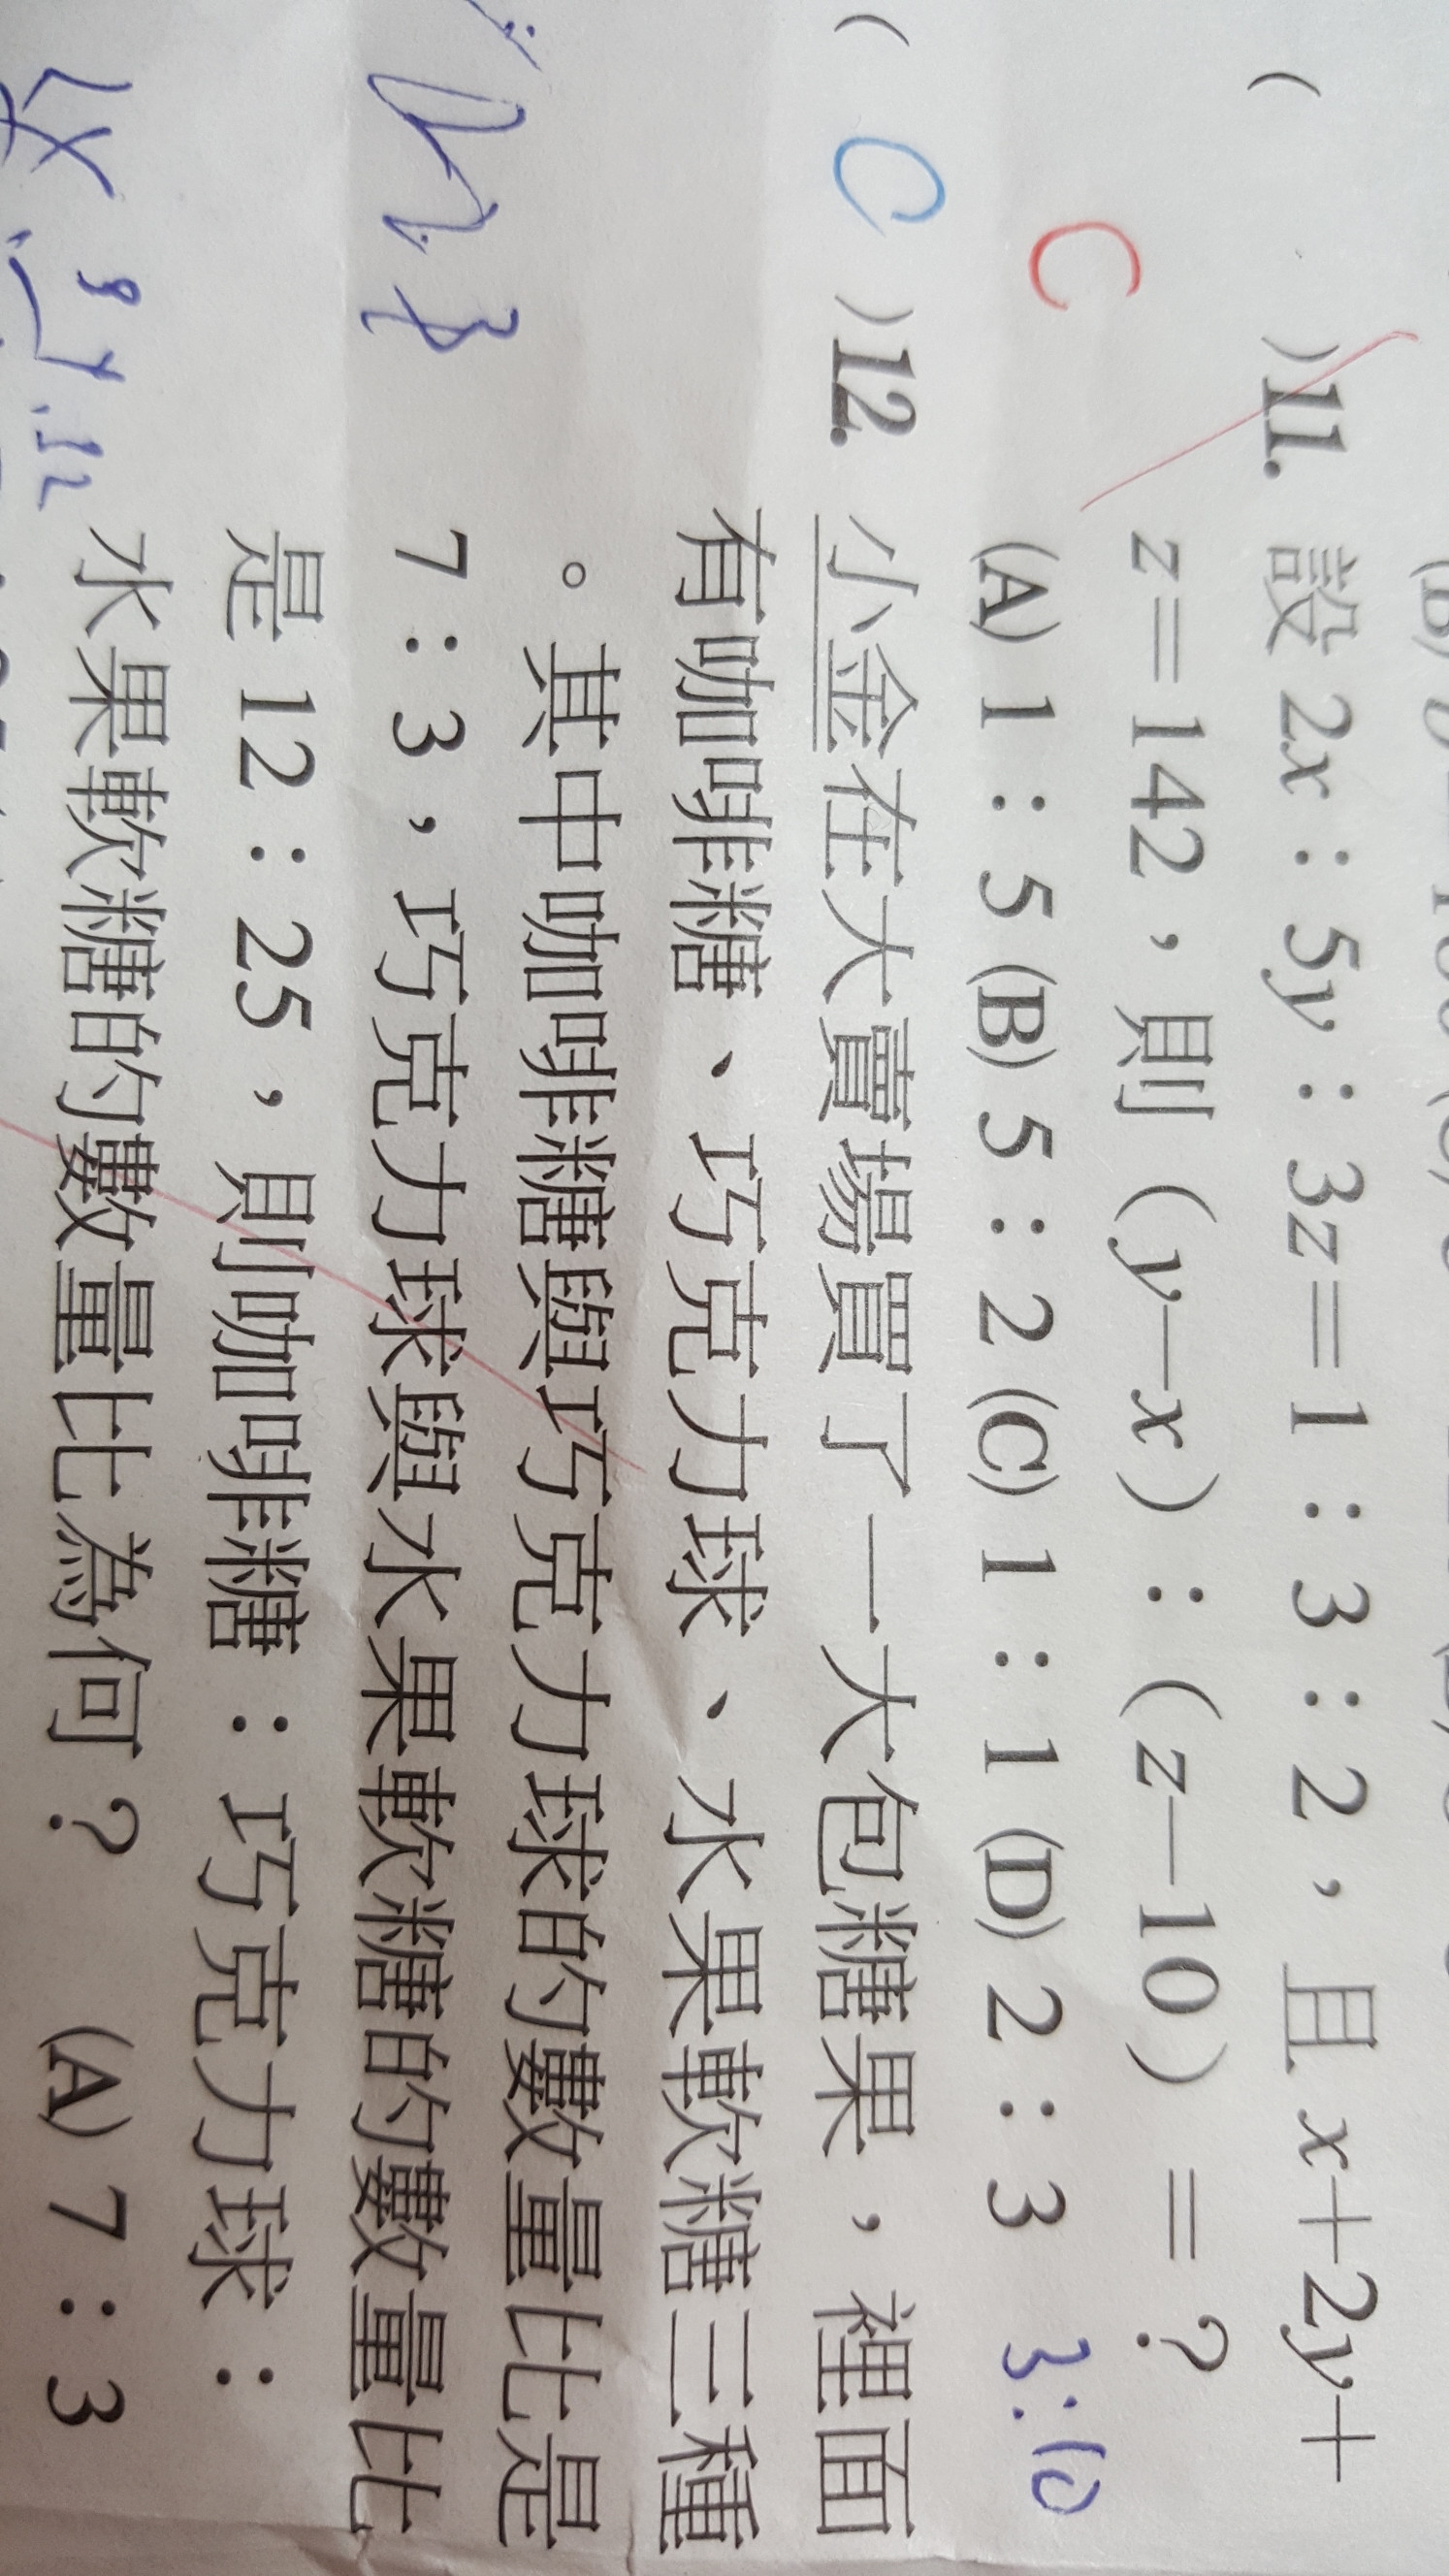 ( )11. 設 2x：5y：3z＝1：3：2，且 x＋2y＋
z＝142，則（y－x）：（z－10）＝？
C
(A) 1：5 (B) 5：2 (C) 1：1 (D) 2：3 3:10
( C )12. 小金在大賣場買了一大包糖果，裡面
有咖啡糖、巧克力球、水果軟糖三種
。其中咖啡糖與巧克力球的數量比是
7：3，巧克力球與水果軟糖的數量比
是 12：25，則咖啡糖：巧克力球：
水果軟糖的數量比為何？ (A) 7：3